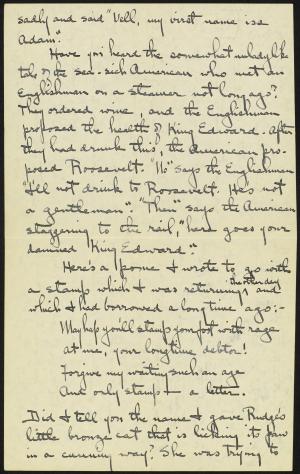 sadly and said "Vell, my virst name isa
Adam".
Have you heard the somewhat unladylike
tale of the sea-sick American who met an
Englishman on a steamer not long ago?
They ordered wine, and the Englishman
proposed the health of King Edward. After
they had drunk this, the American pro-
posed Roosevelt. "No" says the Englishman
"I'll not drink to Roosevelt. He's not
a gentleman". "Then" says the American
staggering to the rail, "here goes your
damned King Edward".
Here's a pome I wrote to go with
a stamp which I was returning the other day, and
which I had borrowed a long time ago:-
Mayhap you'll stamp your foot with rage
at me, your longtime debtor!
Forgive my waiting such an age
And only stamp — a letter.
Did I tell you the name I gave Rudge's
little bronze cat that is licking its paw
in a cunning way? She was trying to